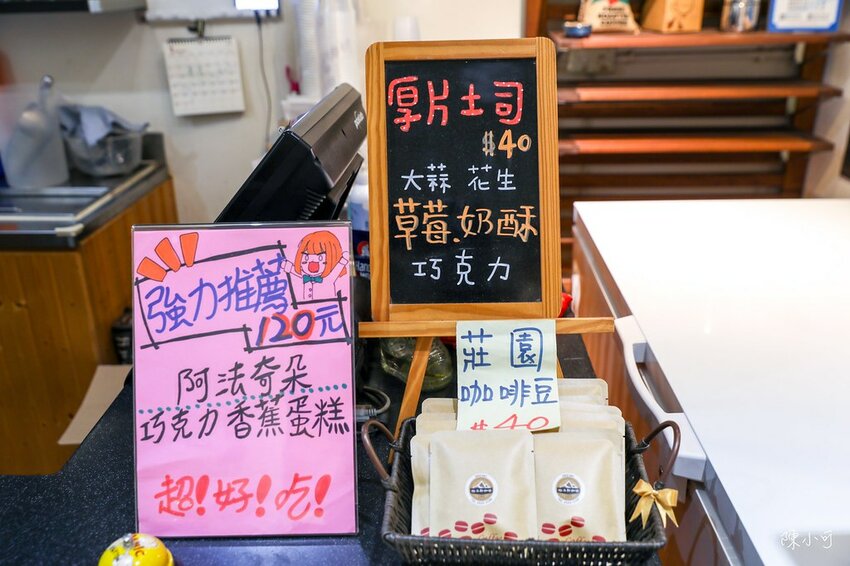 強力推薦
120元
阿法奇朵
巧克力香蕉蛋糕
超!好!吃!
厚片土司
$40
大蒜 花生
草莓、奶酥
巧克力
莊園
咖啡豆
$40
陳小可